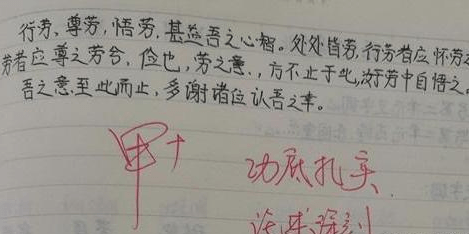 行劳、尊劳,悟劳,甚益吾之心智。处处皆劳,行劳者应怀劳之
劳者应尊之劳舍,俭也,劳之意,方不止于此,汝于劳中自悟之。
吾之意至此而止,多谢诸位认吾之率。
甲+
功底扎实.
深刻